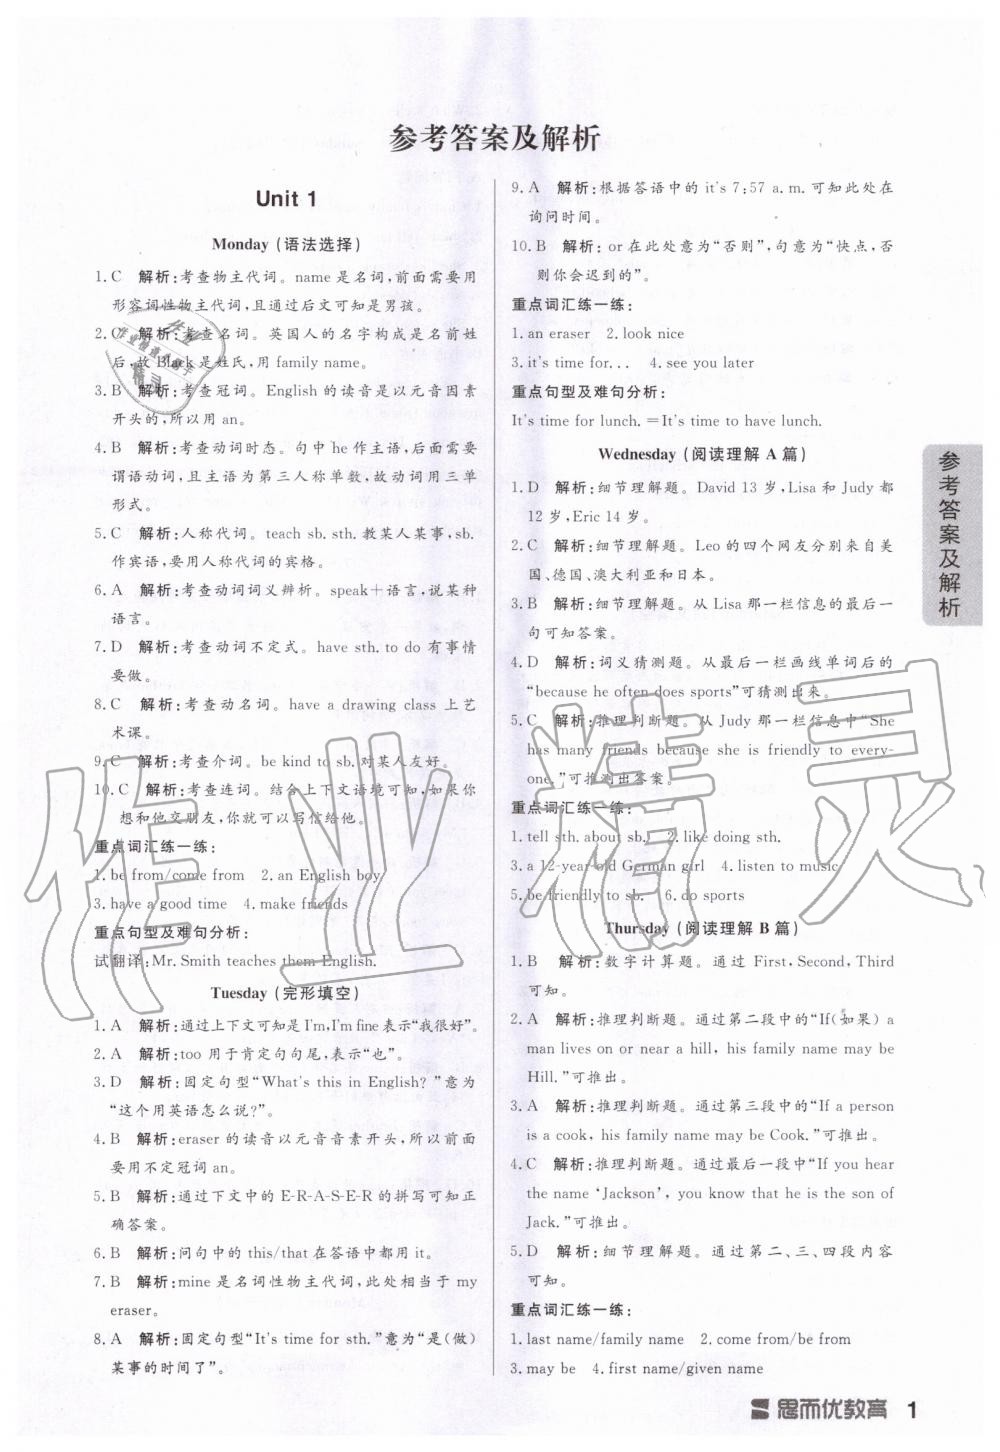 参考答案及解析
Unit 1
Monday (语法选择)
1. C 解析:考查物主代词。name 是名词,前面需要用
形容词性物主代词,且通过后文可知是男孩。
2. C 解析:考查名词。英国人的名字构成是名前姓
后,故 Black 是姓氏,用 family name。
3. B 解析:考查冠词。English 的读音是以元音因素
开头的,所以用 an。
4. B 解析:考查动词时态。句中 he 作主语,后面需要
谓语动词,且主语为第三人称单数,故动词用三单
形式。
5. C 解析:人称代词。teach sb. sth. 教某人某事,sb.
作宾语,要用人称代词的宾格。
6. A 解析:考查动词词义辨析。speak+语言,说某种
语言。
7. D 解析:考查动词不定式。have sth. to do 有事情
要做。
8. C 解析:考查动名词。have a drawing class 上艺
术课。
9. C 解析:考查介词。be kind to sb. 对某人友好。
10. C 解析:考查连词。结合上下文语境可知,如果你
想和他交朋友,你就可以写信给他。
重点词汇练一练:
1. be from/come from 2. an English boy
3. have a good time 4. make friends
重点句型及难句分析:
试翻译:Mr. Smith teaches them English.
Tuesday (完形填空)
1. A 解析:通过上下文可知是 I'm,I'm fine 表示“我很好”。
2. A 解析:too 用于肯定句句尾,表示“也”。
3. D 解析:固定句型“What's this in English? ”意为
“这个用英语怎么说?”。
4. B 解析:eraser 的读音以元音音素开头,所以前面
要用不定冠词 an。
5. B 解析:通过下文中的 E-R-A-S-E-R 的拼写可知正
确答案。
6. B 解析:问句中的 this/that 在答语中都用 it。
7. B 解析:mine 是名词性物主代词,此处相当于 my
eraser.
8. A 解析:固定句型“It's time for sth. ”意为“是(做)
某事的时间了”。
9. A 解析:根据答语中的 it's 7:57 a. m. 可知此处在
询问时间。
10. B 解析:or 在此处意为“否则”,句意为“快点,否
则你会迟到的”。
重点词汇练一练:
1. an eraser 2. look nice
3. it's time for... 4. see you later
重点句型及难句分析:
It's time for lunch. =It's time to have lunch.
Wednesday (阅读理解 A 篇)
1. D 解析:细节理解题。David 13 岁,Lisa 和 Judy 都
12 岁,Eric 14 岁。
2. C 解析:细节理解题。Leo 的四个网友分别来自美
国、德国、澳大利亚和日本。
3. B 解析:细节理解题。从 Lisa 那一栏信息的最后一
句可知答案。
4. D 解析:词义猜测题。从最后一栏画线单词后的
“because he often does sports”可猜测出来。
5. C 解析:推理判断题。从 Judy 那一栏信息中“She
has many friends because she is friendly to every-
one. ”可推测出答案。
重点词汇练一练:
1. tell sth. about sb. 2. like doing sth.
3. a 12-year-old German girl 4. listen to music
5. be friendly to sb. 6. do sports
Thursday (阅读理解 B 篇)
1. B 解析:数字计算题。通过 First, Second, Third
可知。
2. A 解析:推理判断题。通过第二段中的“If(如果) a
man lives on or near a hill, his family name may be
Hill. ”可推出。
3. A 解析:推理判断题。通过第三段中的“If a person
is a cook, his family name may be Cook. ”可推出。
4. C 解析:推理判断题。通过最后一段中的“If you hear
the name ‘Jackson’, you know that he is the son of
Jack. ”可推出。
5. D 解析:细节理解题。通过第二、三、四段内容
可知。
重点词汇练一练:
1. last name/family name 2. come from/be from
3. may be 4. first name/given name
参考答案及解析
思而优教育 1
作业精灵